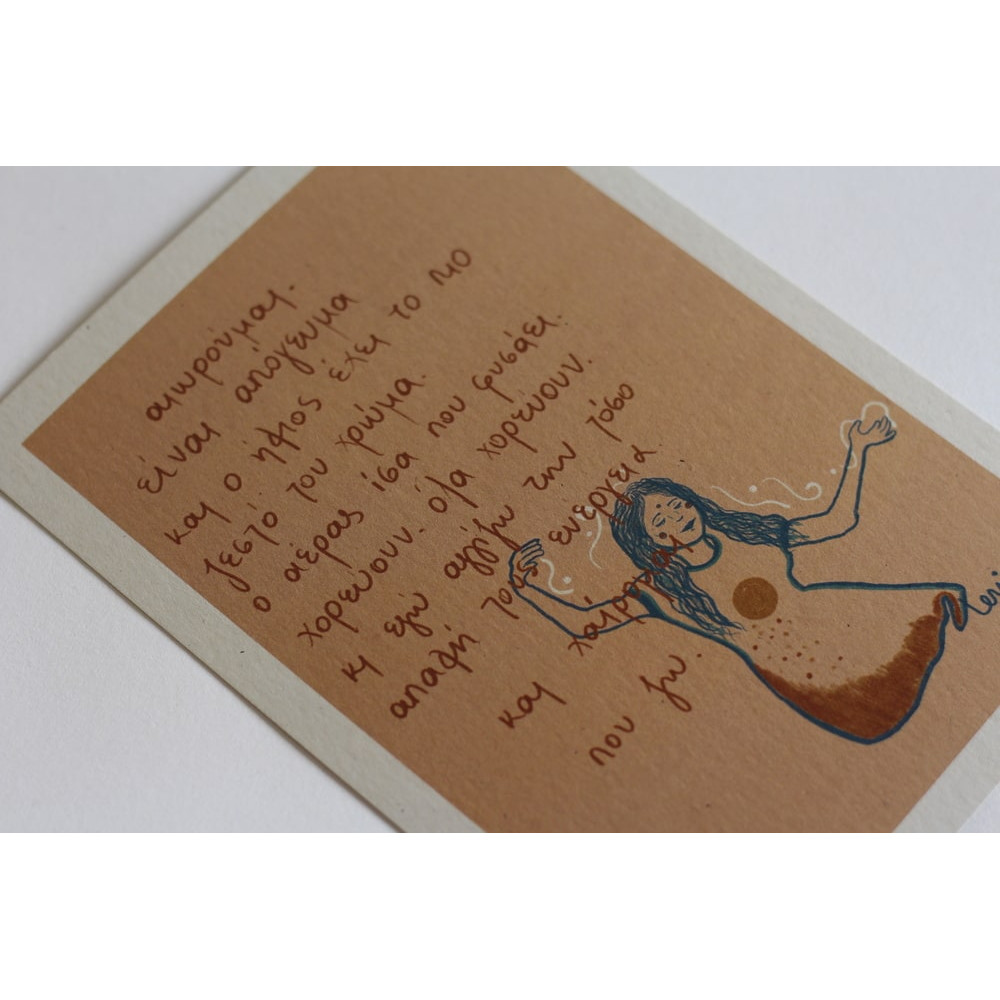 αιωρούμαι.
είναι απόγευμα
και ο ήλιος έχει το πιο
ζεστό του χρώμα.
ο αέρας ίσα που φυσάει.
χορεύουν. όλα χορεύουν.
κι εγώ αγγίζω την τόσο
απαλή τους ενέργεια
και χαίρομαι
που ζω.